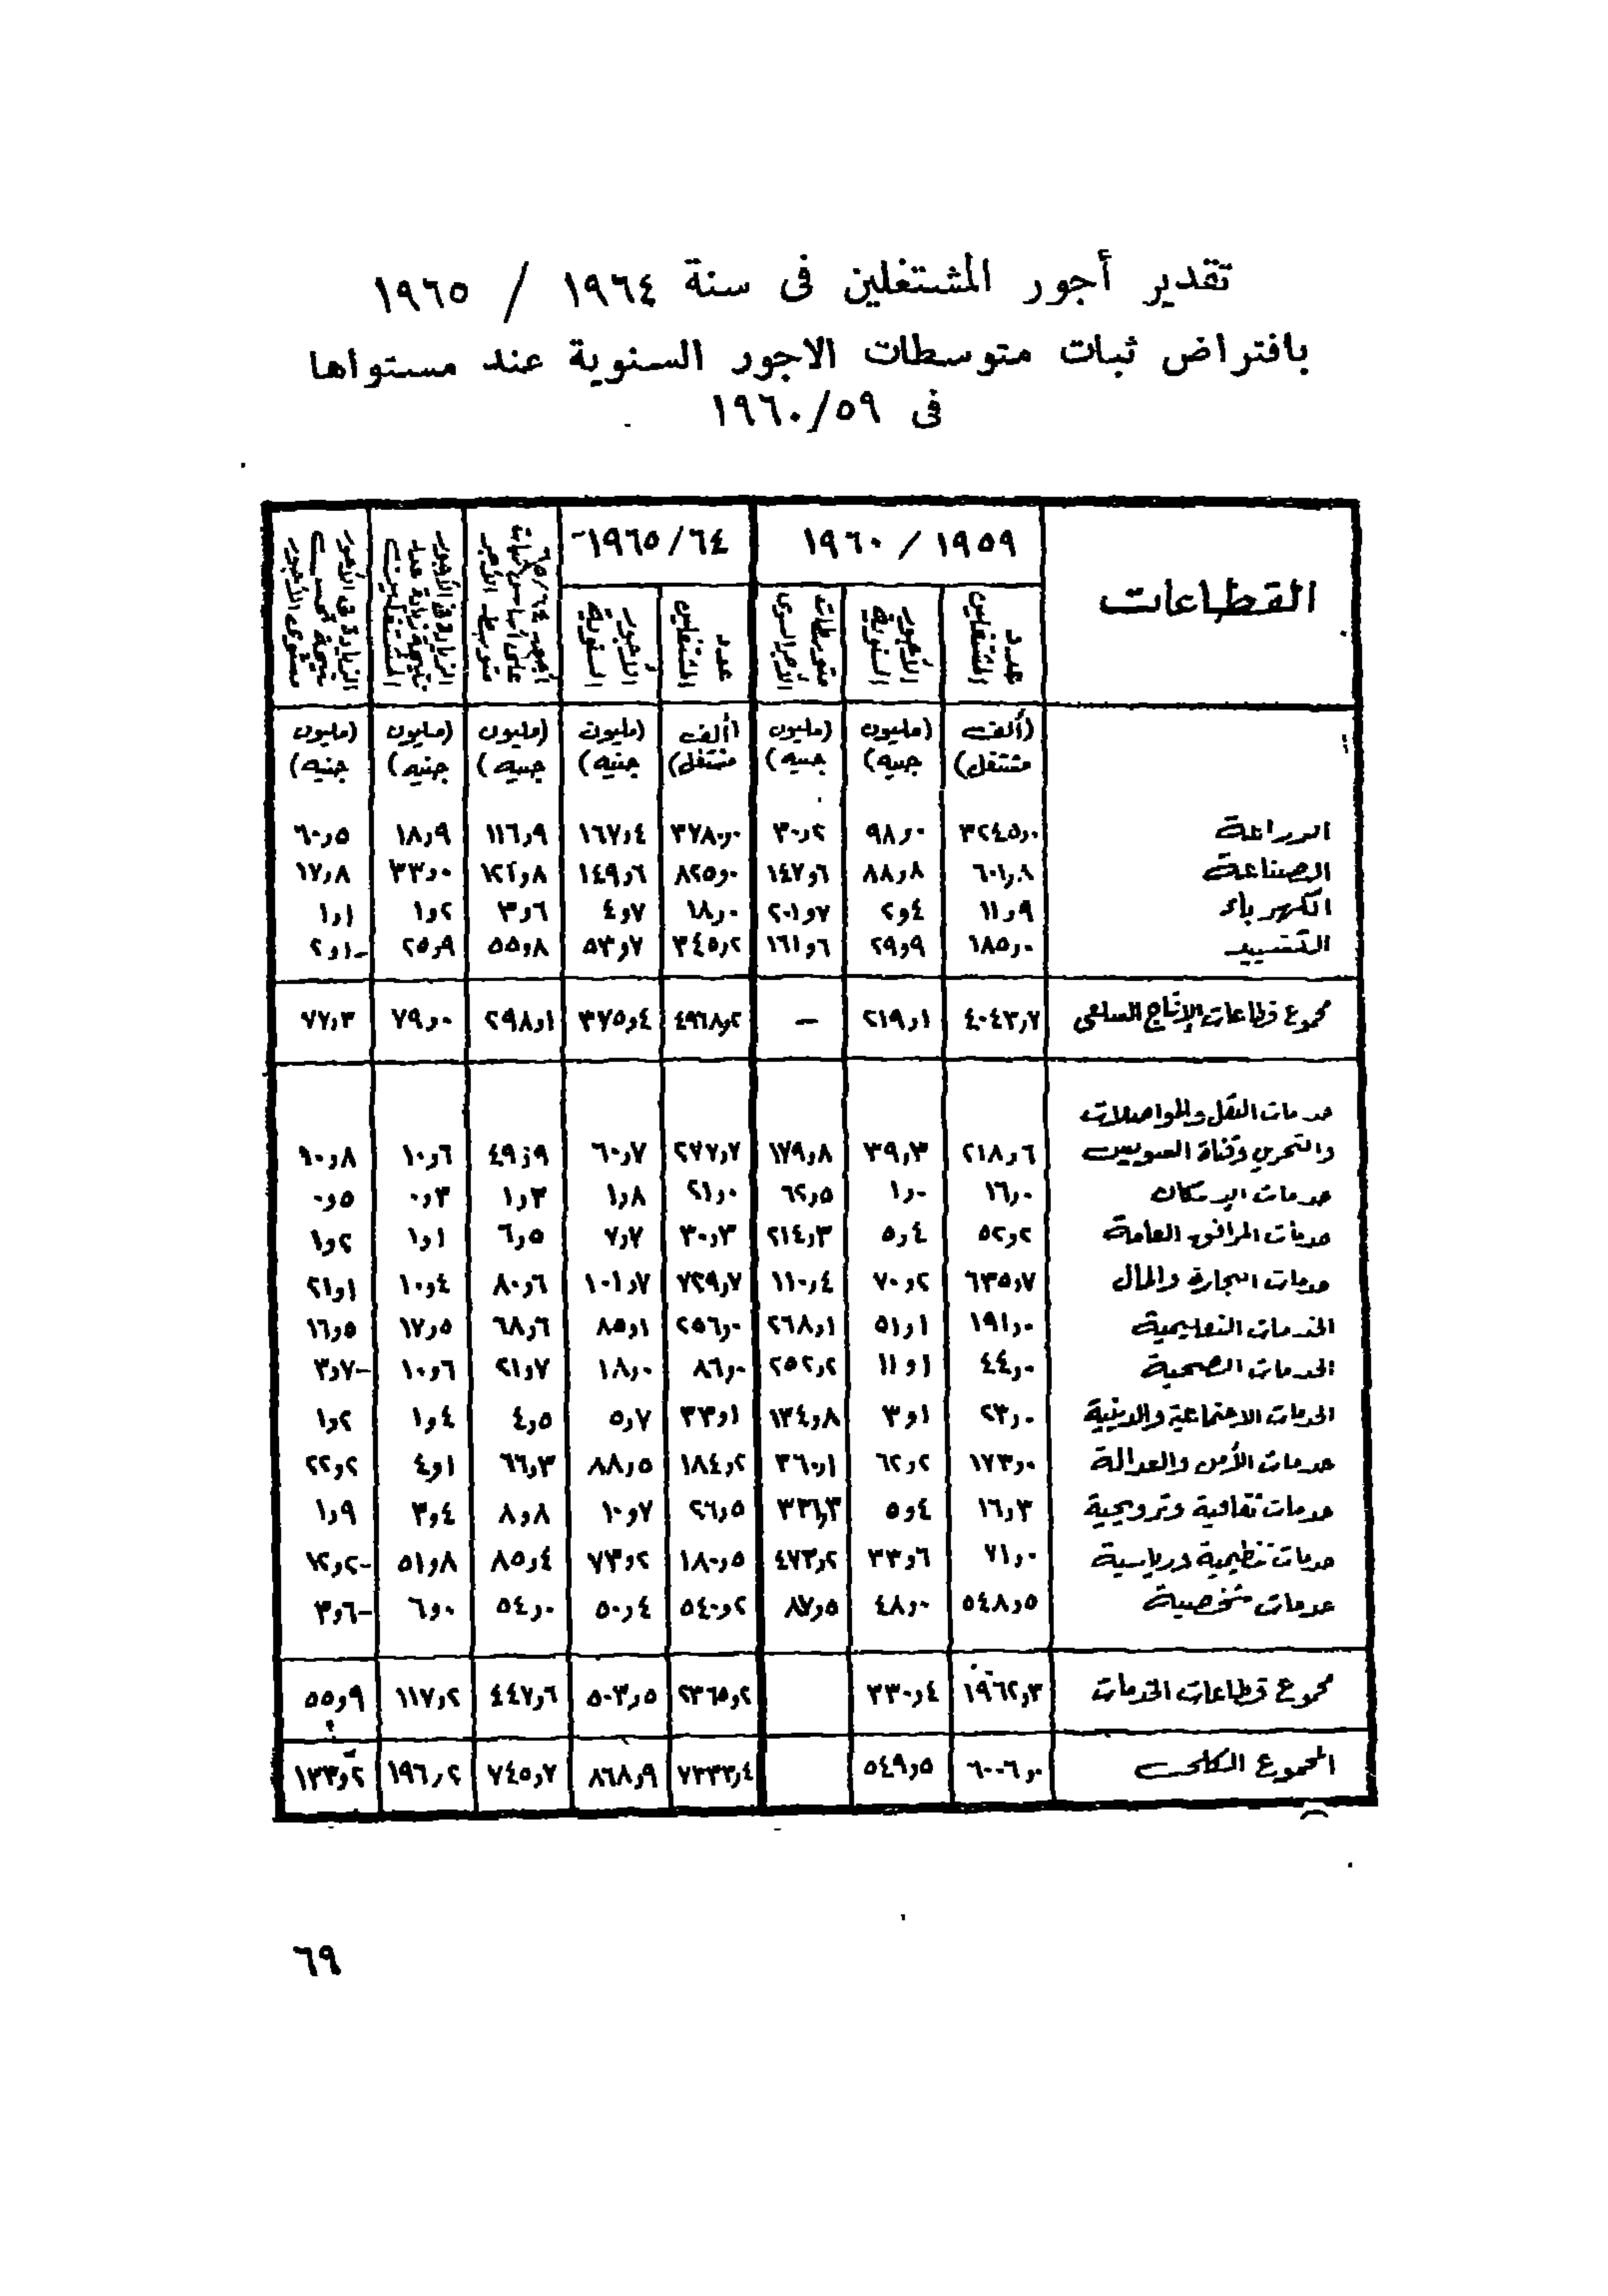 تقدير أجور المشتغلين فى سنة ١٩٦٤ / ١٩٦٥
بافتراض ثبات متوسطات الاجور السنوية عند مستواها
فى ١٩٦٠/٥٩
القطاعات ١٩٥٩ / ١٩٦٠ ١٩٦٥/٦٤
عدد المشتغلين الأجور السنوية متوسطات الأجر السنوى عدد المشتغلين الأجور السنوية ٦٥/٦٤ على أساس ثبات متوسط الأجر الزيادة فى الأجور نتيجة زيادة عدد المشتغلين الزيادة فى الأجور نتيجة تحسن مستوى الأجور
(ألف مشتغل) (مليون جنيه) (مليون جنيه) (ألف مشتغل) (مليون جنيه) (مليون جنيه) (مليون جنيه) (مليون جنيه)
الزراعة ٣٢٤٥,٠ ٩٨,٠ ٣٠,٢ ٣٧٨٠,٠ ١٦٧,٤ ١١٦,٩ ١٨,٩ ٦٠,٥
الصناعة ٦٠١,٨ ٨٨,٨ ١٤٧,٦ ٨٢٥,٠ ١٤٩,٦ ١٢١,٨ ٣٣,٠ ١٧,٨
الكهرباء ١١,٩ ٢,٤ ٢٠١,٧ ١٨,٠ ٤,٧ ٣,٦ ١,٢ ١,١
التشييد ١٨٥,٠ ٢٩,٩ ١٦١,٦ ٣٤٥,٢ ٥٣,٧ ٥٥,٨ ٢٥,٩ -٢,١
مجموع قطاعات الإنتاج السلعى ٤٠٤٣,٧ ٢١٩,١ — ٤٩٦٨,٢ ٣٧٥,٤ ٢٩٨,١ ٧٩,٠ ٧٧,٣
خدمات النقل والمواصلات
والتخزين وقناة السويس ٢١٨,٦ ٣٩,٣ ١٧٩,٨ ٢٧٧,٧ ٦٠,٧ ٤٩,٩ ١٠,٦ ١٠,٨
خدمات الإسكان ١٦,٠ ١,٠ ٦٢,٥ ٢١,٠ ١,٨ ١,٣ ٠,٣ ٠,٥
خدمات المرافق العامة ٥٢,٢ ٥,٤ ٢١٤,٣ ٣٠,٣ ٧,٧ ٦,٥ ١,١ ١,٢
خدمات التجارة والمال ٦٣٥,٧ ٧٠,٢ ١١٠,٤ ٧٢٩,٧ ١٠١,٧ ٨٠,٦ ١٠,٤ ٢١,١
الخدمات التعليمية ١٩١,٠ ٥١,١ ٢٦٨,١ ٢٥٦,٠ ٨٥,١ ٦٨,٦ ١٧,٥ ١٦,٥
الخدمات الصحية ٤٤,٠ ١١,١ ٢٥٢,٢ ٨٦,٠ ١٨,٠ ٢١,٧ ١٠,٦ -٣,٧
الخدمات الاجتماعية والدينية ٢٣,٠ ٣,١ ١٣٤,٨ ٣٣,١ ٥,٧ ٤,٥ ١,٤ ١,٢
خدمات الأمن والعدالة ١٧٣,٠ ٦٢,٢ ٣٦٠,١ ١٨٤,٢ ٨٨,٥ ٦٦,٣ ٤,١ ٢٢,٢
خدمات ثقافية وترويحية ١٦,٣ ٥,٤ ٣٣٦,٣ ٢٦,٥ ١٠,٧ ٨,٨ ٣,٤ ١,٩
خدمات تنظيمية ورياسية ٧١,٠ ٣٣,٦ ٤٧٣,٢ ١٨٠,٥ ٧٣,٢ ٨٥,٤ ٥١,٨ -١٢,٢
خدمات شخصية ٥٤٨,٥ ٤٨,٠ ٨٧,٥ ٥٤٠,٢ ٥٠,٤ ٥٤,٠ ٦,٠ -٣,٦
مجموع قطاعات الخدمات ١٩٦٢,٣ ٣٣٠,٤ ٢٣٦٥,٢ ٥٠٣,٥ ٤٤٧,٦ ١١٧,٢ ٥٥,٩
المجموع الكلى ٦٠٠٦,٠ ٥٤٩,٥ ٧٣٣٣,٤ ٨٦٨,٩ ٧٤٥,٧ ١٩٦,٢ ١٣٣,٢
٦٩